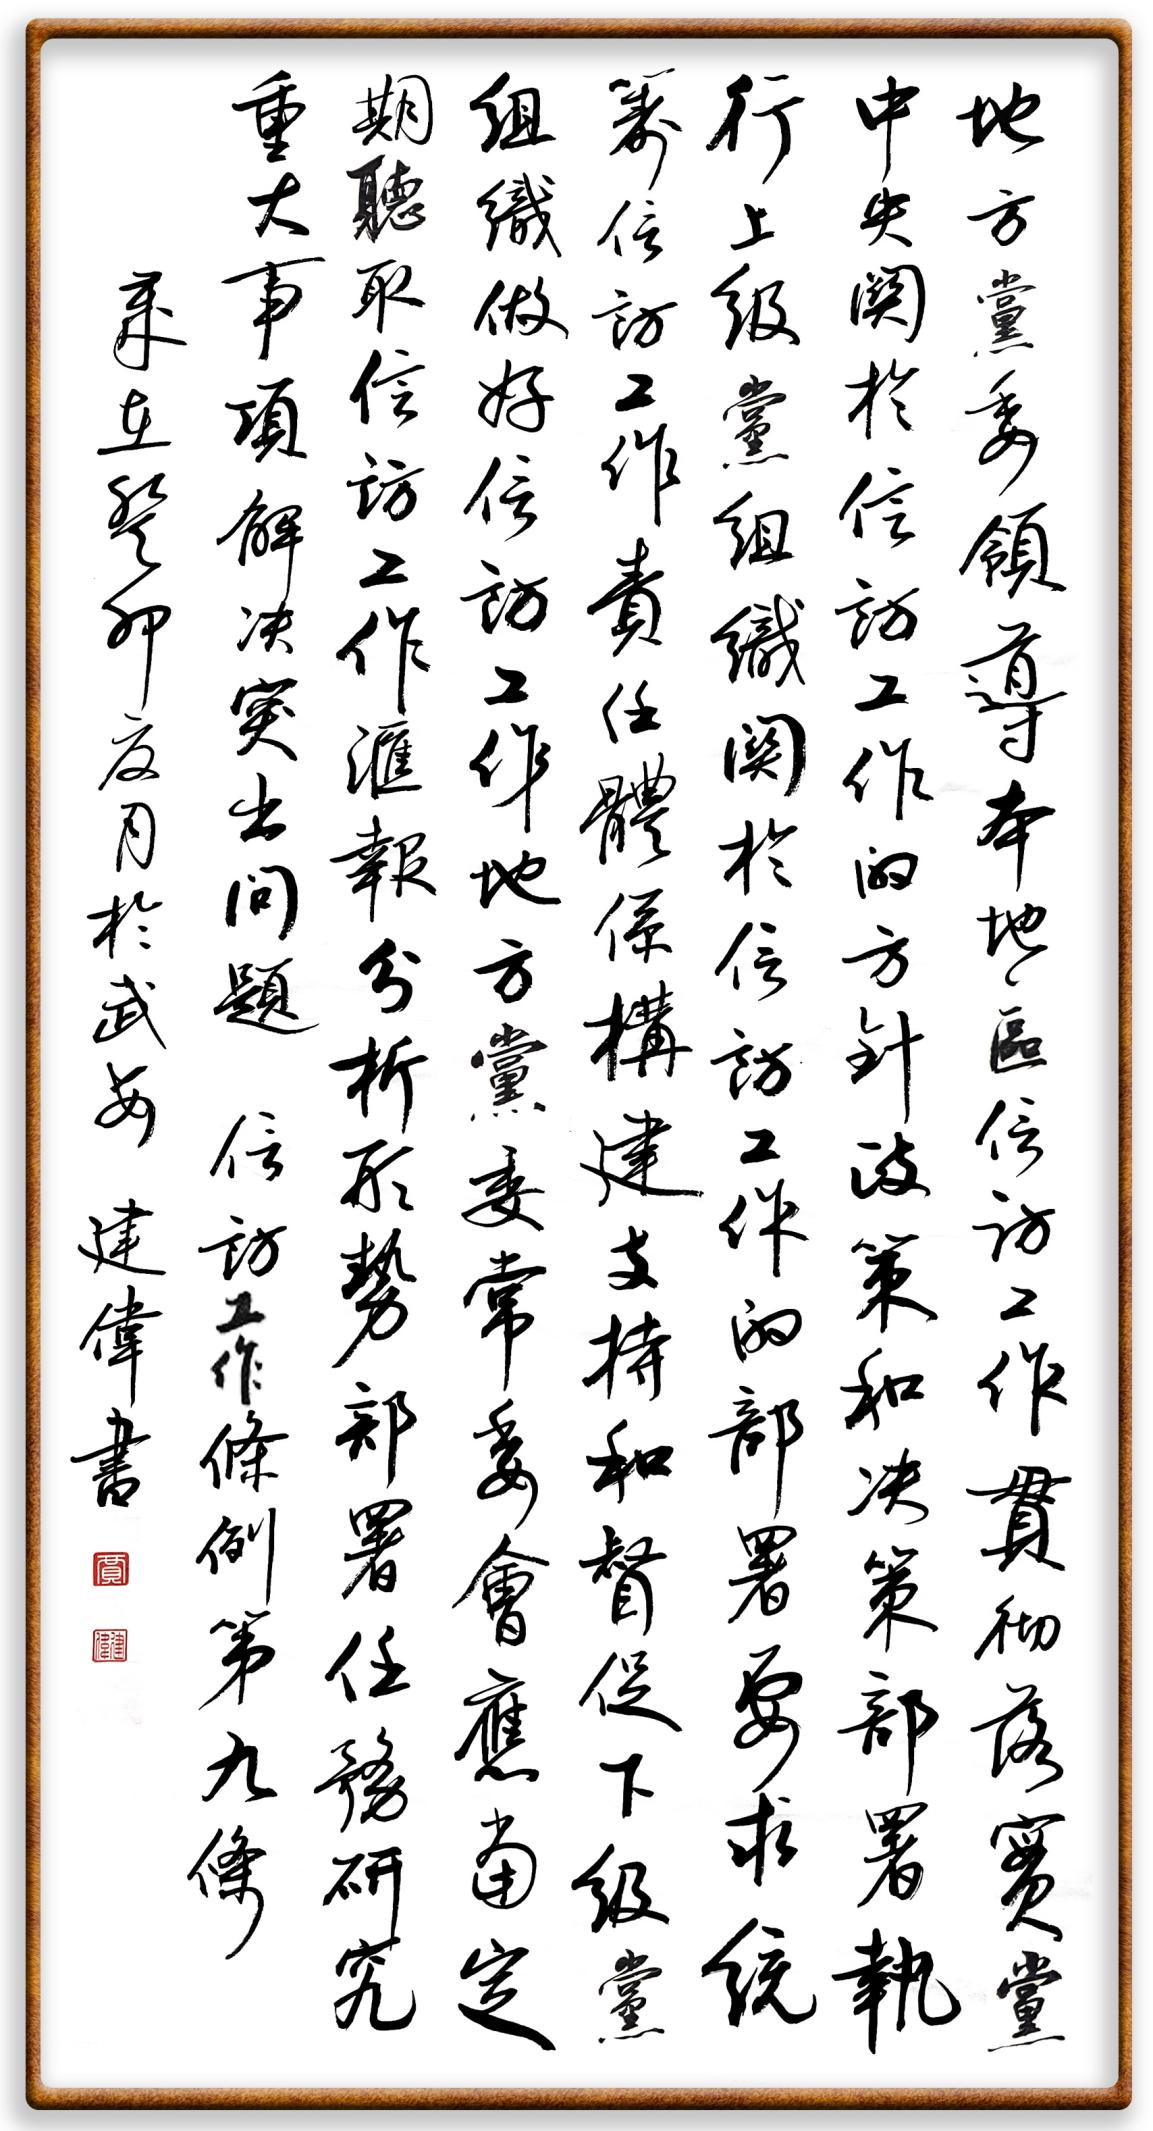 地方黨委領導本地區信訪工作貫彻落實黨
中央関於信訪工作的方針政策和决策部署執
行上級黨組織関於信訪工作的部署要求統
籌信訪工作責任體係構建支持和督促下級黨
組織做好信訪工作地方黨委常委會應當定
期聽取信訪工作滙報分析形勢部署任務研究
重大事項解决突出問題 信訪工作條例第九條
歲在癸卯夏月於武安 建偉書
賈
建偉